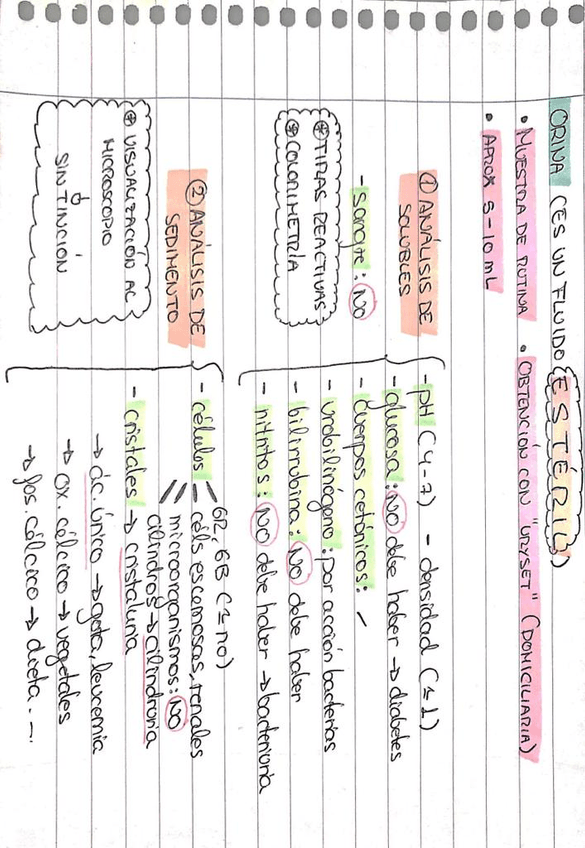 ORINA (ES UN FLUIDO ESTÉRIL)
• MUESTRA DE RUTINA • OBTENCIÓN CON "URYSET" (DOMICILIARIA)
• APROX 5-10 mL
① ANÁLISIS DE
SOLUBLES
- sangre: NO
⊛ TIRAS REACTIVAS
⊛ COLORIMETRÍA
- pH (4-7) - densidad (≤1)
- glucosa: NO debe haber → diabetes
- cuerpos cetónicos: -
- urobilinógeno: por acción bacterias
- bilirrubina: NO debe haber
- nitritos: NO debe haber → bacteriuria
② ANÁLISIS DE
SEDIMENTO
⊛ VISUALIZACIÓN AL
MICROSCOPIO
SIN TINCIÓN
GR, GB (≤ no)
- células - céls escamosas, renales
microorganismos: NO
cilindros → cilindruria
- cristales → cristaluria
→ ác. único → gota, leucemia
→ ox. cálcico → vegetales
→ fos. cálcico → dieta...